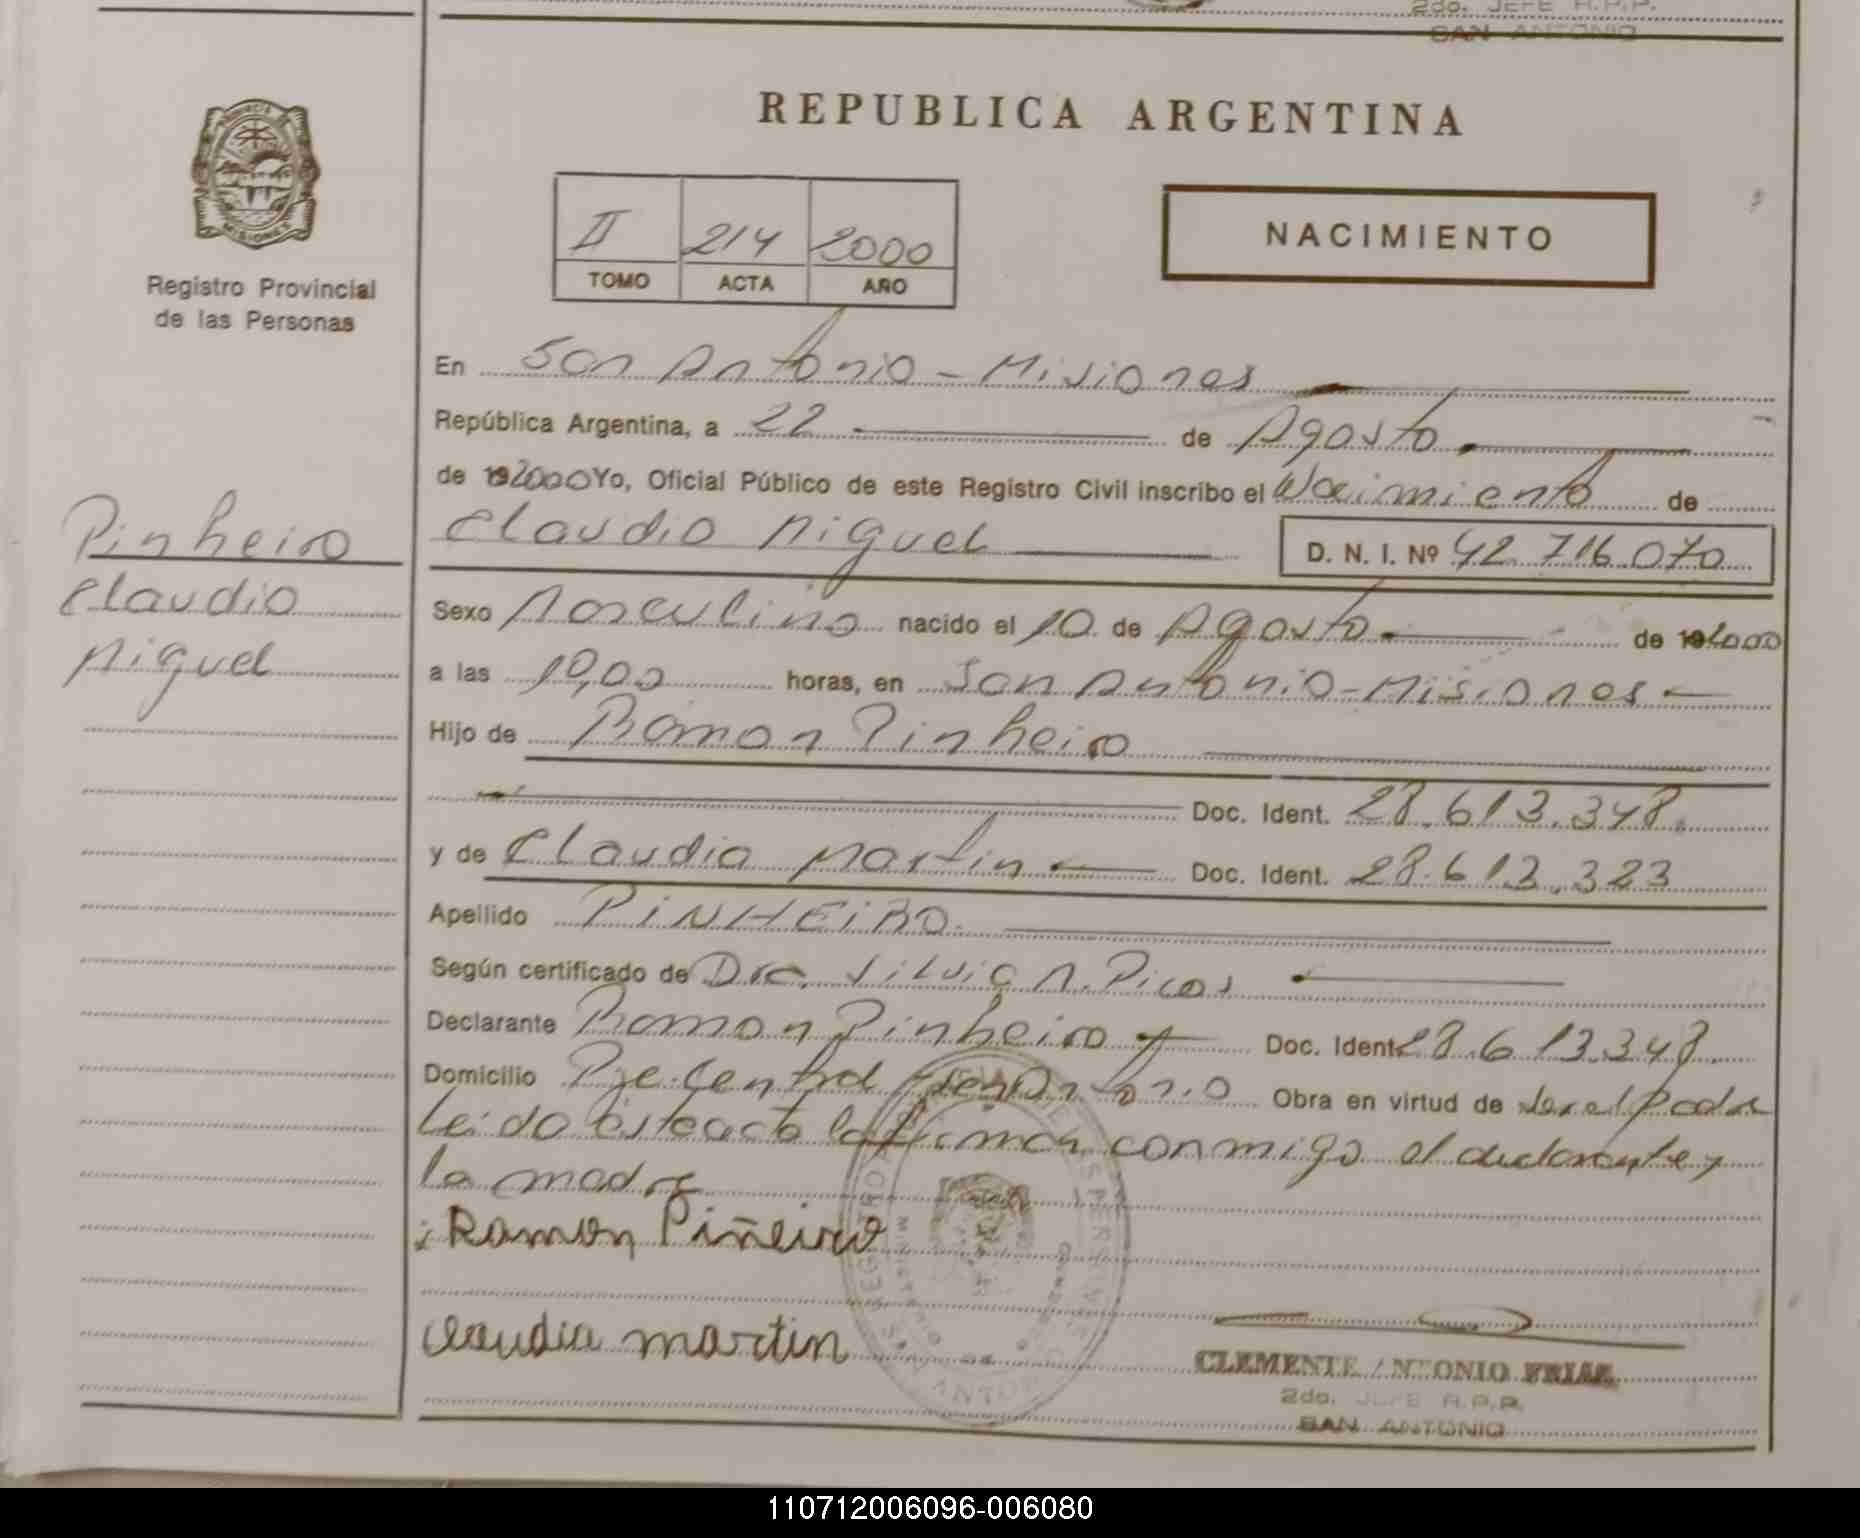 2do. JEFE R.P.P.
SAN ANTONIO
REPUBLICA ARGENTINA
PROVINCIA
MISIONES
Registro Provincial
de las Personas
II 214 2000
TOMO ACTA AÑO
NACIMIENTO
En San Antonio - Misiones
República Argentina, a 22 de Agosto
de 192000 Yo, Oficial Público de este Registro Civil inscribo el Nacimiento de
Claudio Miguel D. N. I. Nº 42.716.070
Pinheiro
Claudio
Miguel
Sexo Masculino nacido el 10 de Agosto de 192000
a las 10,00 horas, en San Antonio - Misiones
Hijo de Ramon Pinheiro
Doc. Ident. 28.613.348.
y de Claudia Martin Doc. Ident. 28.613.323
Apellido PINHEIRO.
Según certificado de Dra. Silvia N. Picos
Declarante Ramon Pinheiro Doc. Ident. 28.613.348.
Domicilio Pje. Central San Antonio Obra en virtud de ser el Padre
Leido este acta la firman conmigo el declarante y
la madre
Ramon Piñeiro
Claudia martin
CLEMENTE ANTONIO FRIAS
2do. JEFE R.P.P.
SAN ANTONIO
110712006096-006080